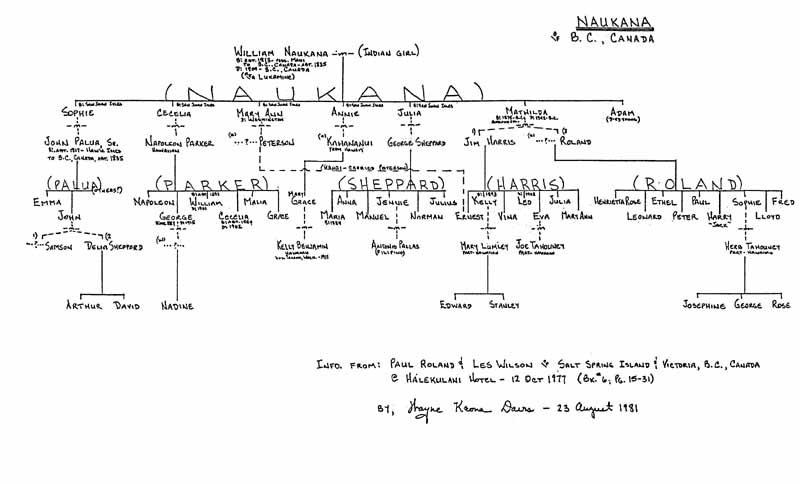 NAUKANA
B.C., CANADA
WILLIAM NAUKANA (INDIAN GIRL)
TO B.C., CANADA - ABT. 1835
(NAUKANA)
SOPHIE CECELIA MARY ANN ANNIE JULIA MATHILDA ADAM
(D-YOUNG)
JOHN PALUA, SR. NAPOLEON PARKER (w) ...?... PETERSON (w) KAHANANUI GEORGE SHEPPARD JIM HARRIS (w) ...?... ROLAND
HAWAIIAN
TO B.C., CANADA, ABT. 1835
(HANAI - CARRIED PETERSON)
(PALUA) (OTHERS?) (PARKER) (SHEPPARD) (HARRIS) (ROLAND)
EMMA NAPOLEON WILLIAM MALIA MARY GRACE ANNA JENNIE JULIUS KELLY LEO JULIA HENRIETTA ROSE ETHEL PAUL SOPHIE FRED
JOHN GEORGE CECELIA GRACE MARIA MANUEL NORMAN ERNEST VINA EVA MARY ANN LEONARD PETER HARRY LLOYD
"JACK"
1) 2)
...?... SAMSON DELIA SHEPPARD (w) ...?... KELLY BENJAMIN ANTONIO PALLAS MARY LUMLEY JOE TAHOUNEY HERB TAHOUNEY
HAWAIIAN (FILIPINO) PART-HAWAIIAN PART-HAWAIIAN PART-HAWAIIAN
ARTHUR DAVID NADINE EDWARD STANLEY JOSEPHINE GEORGE ROSE
INFO. FROM: PAUL ROLAND & LES WILSON SALT SPRING ISLAND & VICTORIA, B.C., CANADA
@ HALEKULANI HOTEL - 12 OCT 1977 (BK. #6; PG. 15-31)
BY, - 23 AUGUST 1981